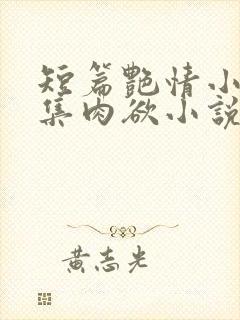 短篇艷情小
集肉欲小說
黄志光